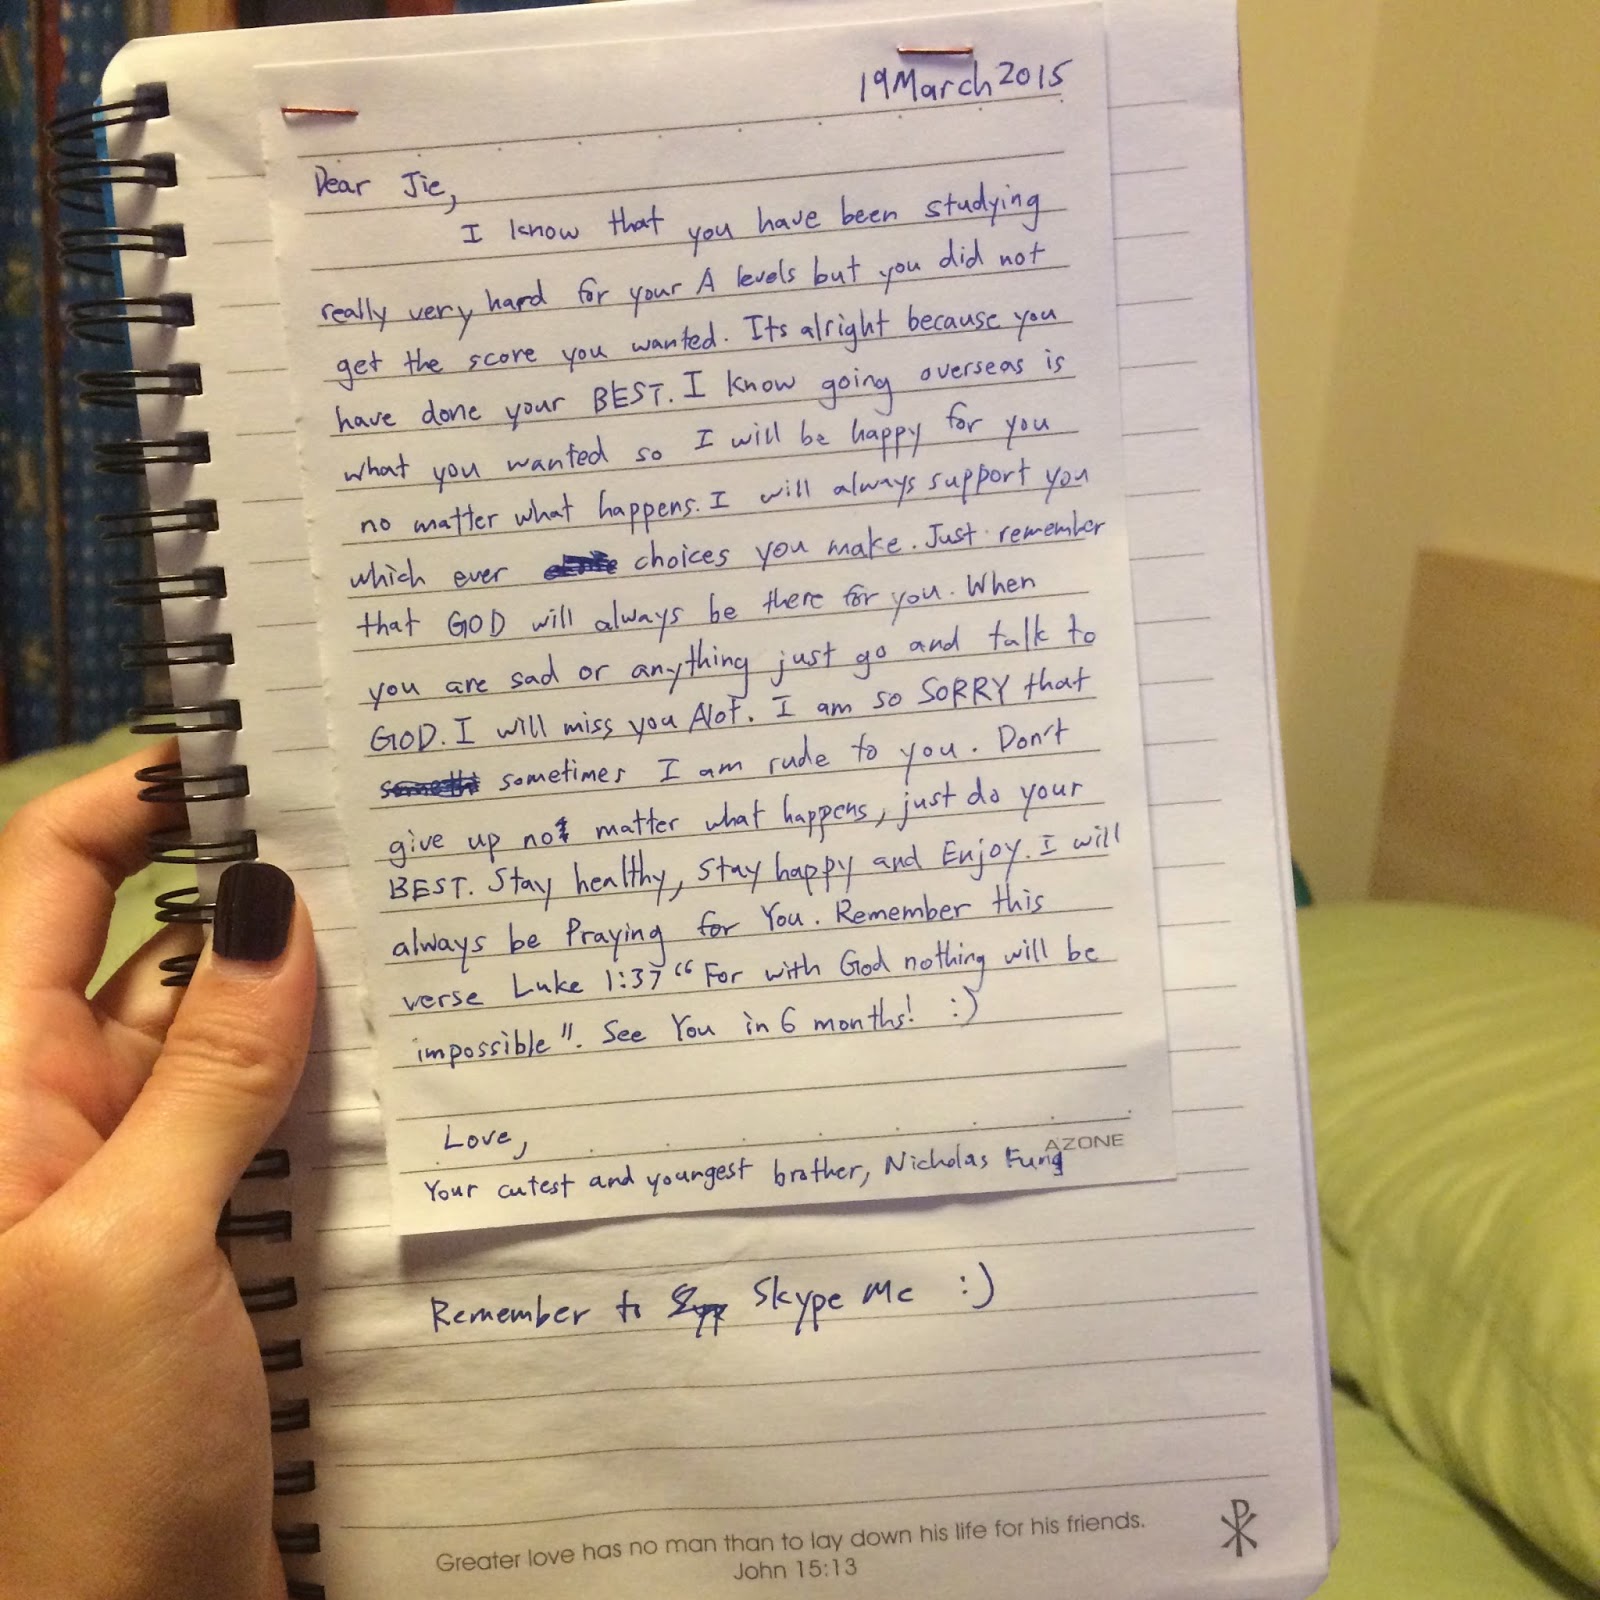 19 March 2015
Dear Jie,
I know that you have been studying
really very hard for your A levels but you did not
get the score you wanted. Its alright because you
have done your BEST. I know going overseas is
what you wanted so I will be happy for you
no matter what happens. I will always support you
which ever choices you make. Just remember
that GOD will always be there for you. When
you are sad or anything just go and talk to
GOD. I will miss you Alot. I am so SORRY that
sometimes I am rude to you. Don't
give up no matter what happens, just do your
BEST. Stay healthy, Stay happy and Enjoy. I will
always be Praying for You. Remember this
verse Luke 1:37 "For with God nothing will be
impossible". See You in 6 months! :)
Love,
AZONE
Your cutest and youngest brother, Nicholas Fung
Remember to Skype Me :)
Greater love has no man than to lay down his life for his friends.
John 15:13